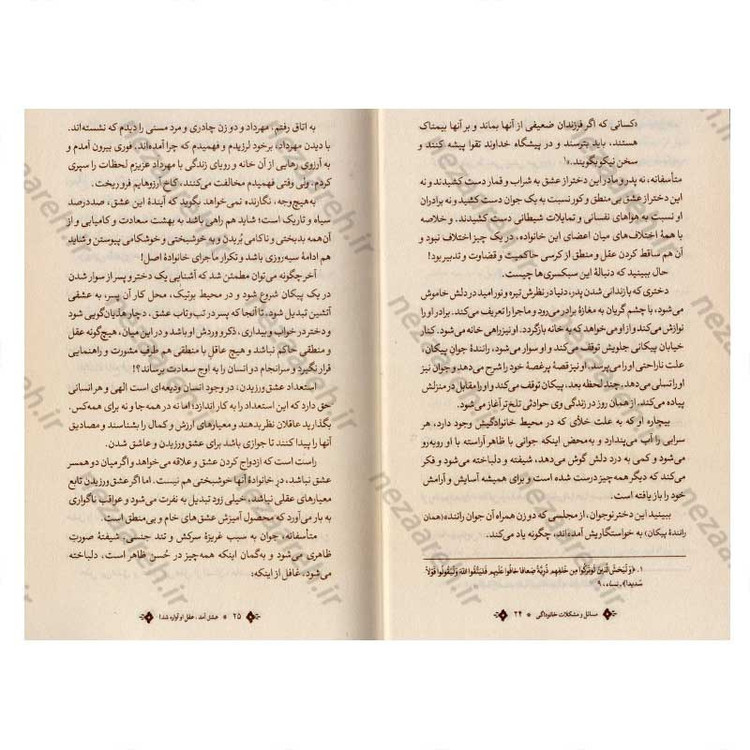 «کسانی که اگر فرزندان ضعیفی از آنها بماند و بر آنها بیمناک
هستند، باید بترسند و در پیشگاه خداوند تقوا پیشه کنند و
سخن نیکو بگویند.»۱
متأسفانه، نه پدر و مادر این دختر از عشق به شراب و قمار دست کشیدند و نه
این دختر از عشق بی‌منطق و کور نسبت به یک جوان دست کشید و نه برادران
او نسبت به هواهای نفسانی و تمایلات شیطانی دست کشیدند. و خلاصه
با همهٔ اختلاف‌های میان اعضای این خانواده، در یک چیز اختلاف نبود و
آن هم ساقط کردن عقل و منطق از کرسی حاکمیت و قضاوت و تدبیر بود!
حال ببینید که دنبالهٔ این سبکسری‌ها چیست.
دختری که با زندانی شدن پدر، دنیا در نظرش تیره و نور امید در دلش خاموش
می‌شود، با چشم گریان به مغازهٔ برادر می‌رود و ماجرا را تعریف می‌کند. برادر او را
نوازش می‌کند و از او می‌خواهد که به خانه بازگردد. او نیز راهی خانه می‌شود. کنار
خیابان پیکانی جلویش توقف می‌کند و او سوار می‌شود، رانندهٔ جوان پیکان،
علت ناراحتی او را می‌پرسد. او نیز قصهٔ پرغصهٔ خود را شرح می‌دهد و جوان نیز
او را تسلی می‌دهد. چند لحظه بعد، پیکان توقف می‌کند و او را مقابل در منزلش
پیاده می‌کند. از همان روز در زندگی وی حوادثی تلخ‌تر آغاز می‌شود.
بیچاره او که به علت خلأی که در محیط خانوادگیش وجود دارد، هر
سرابی را آب می‌پندارد و به‌محض اینکه جوانی با ظاهر آراسته با او روبه‌رو
می‌شود و کمی به درد دلش گوش می‌دهد، شیفته و دلباخته می‌شود و فکر
می‌کند که دیگر همه‌چیز درست شده است و برای همیشه آسایش و آرامش
خود را بازیافته است.
ببینید این دختر نوجوان، از مجلسی که دو زن همراه آن جوان راننده (همان
رانندهٔ پیکان) به خواستگاریش آمده‌اند، چگونه یاد می‌کند.
۱. ﴿وَ لْیَخْشَ الَّذینَ لَوْ تَرَکُوا مِن خَلْفِهِم ذُرِّیَّةً ضِعَافًا خَافُوا عَلَیْهِم فَلْیَتَّقُوا اللهَ وَلْیَقُولُوا قَوْلاً
سَدیدًا﴾، نساء، ۹
مسائل و مشکلات خانوادگی * ۲۴
به اتاق رفتم، مهرداد و دو زن چادری و مرد مسنی را دیدم که نشسته‌اند.
با دیدن مهرداد، برخود لرزیدم و فهمیدم که چرا آمده‌اند. فوری بیرون آمدم و
به آرزوی رهایی از آن خانه و رویای زندگی با مهرداد عزیزم لحظات را سپری
کردم. ولی وقتی فهمیدم مخالفت می‌کنند، کاخ آرزوهایم فرو ریخت.
به‌هیچ‌وجه، نگارنده نمی‌خواهد بگوید که آیندهٔ این عشق، صددرصد
سیاه و تاریک است؛ شاید هم راهی باشد به بهشت سعادت و کامیابی و از
آن همه بدبختی و ناکامی بُریدن و به خوشبختی و خوشکامی پیوستن و شاید
هم ادامهٔ سیه‌روزی باشد و تکرار ماجرای خانوادهٔ اصل!
آخر چگونه می‌توان مطمئن شد که آشنایی یک دختر و پسر از سوار شدن
در یک پیکان شروع شود و در محیط بوتیک، محل کار آن پسر، به عشقی
آتشین تبدیل شود، تا آنجا که پسر در تب‌وتاب عشق، دچار هذیان‌گویی شود
و دختر در خواب و بیداری، ذکر و وردش او باشد و در این میان، هیچ‌گونه عقل
و منطقی حاکم نباشد و هیچ عاقل با منطقی هم طرف مشورت و راهنمایی
قرار نگیرد و سرانجام دو انسان را به اوج سعادت برساند؟!
استعداد عشق ورزیدن، در وجود انسان ودیعه‌ای است الهی و هر انسانی
حق دارد که این استعداد را به کار اندازد؛ اما نه در همه جا و نه برای همه‌کس.
بگذارید عاقلان نظر بدهند و معیارهای ارزش و کمال را بشناسند و مصادیق
آنها را پیدا کنند تا جوازی باشد برای عشق‌ورزیدن و عاشق شدن.
راست است که ازدواج کردن عشق و علاقه می‌خواهد و اگر میان دو همسر
عشق نباشد، در خانوادهٔ آنها خوشبختی هم نیست. اما اگر عشق ورزیدن تابع
معیارهای عقلی نباشد، خیلی زود تبدیل به نفرت می‌شود و عواقب ناگواری
به بار می‌آورد که محصول آمیزش عشق‌های خام و بی‌منطق است.
متأسفانه، جوان به سبب غریزهٔ سرکش و تند جنسی، شیفتهٔ صورتِ
ظاهری می‌شود و به‌گمان اینکه همه‌چیز در حُسن ظاهر است، دلباخته
می‌شود. غافل از اینکه:
۲۵ * عشق آمد، عقل او آواره شد!
nezaareh.ir